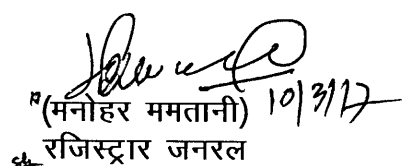 (मनोहर ममतानी) 10/3/17
रजिस्ट्रार जनरल